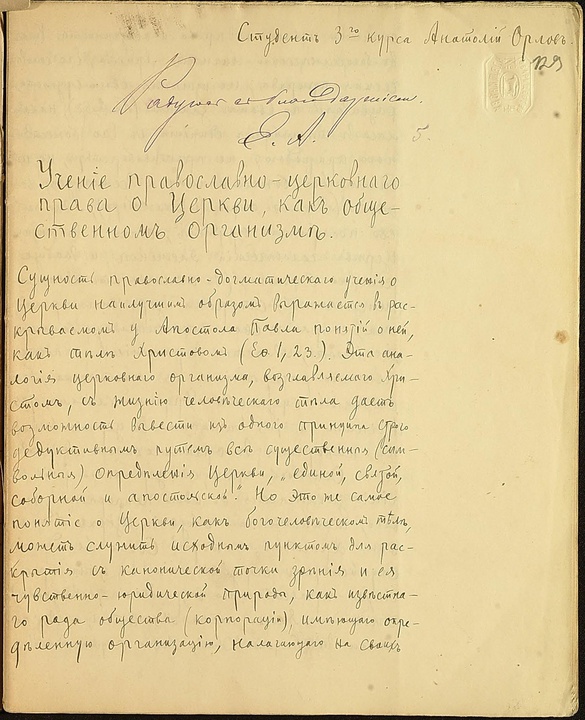 Студентъ 3го курса Анатолій Орловъ.
129
Е. А.
5.
Ученіе православно-церковнаго
права о Церкви, какъ обще-
ственномъ организмѣ.
Сущность православно-догматическаго ученія о
Церкви наилучшимъ образомъ выражается въ рас-
крываемомъ у Апостола Павла понятіи о ней,
какъ тѣлѣ Христовомъ (Еф. 1, 23.). Эта ана-
логія церковнаго организма, возглавляемаго Хри-
стомъ, съ жизнію человѣческаго тѣла даетъ
возможность вывести изъ одного принципа строго
дедуктивнымъ путемъ всѣ существенныя (сим-
вольныя) опредѣленія Церкви, „единой, святой,
соборной и апостольской." Но это же самое
понятіе о Церкви, какъ богочеловѣческомъ тѣлѣ,
можетъ служить исходнымъ пунктомъ для рас-
крытія съ канонической точки зрѣнія и ея
чувственно-юридической природы, какъ извѣстна-
го рода общества (корпораціи), имѣющаго опре-
дѣленную организацію, налагающаго на своихъ